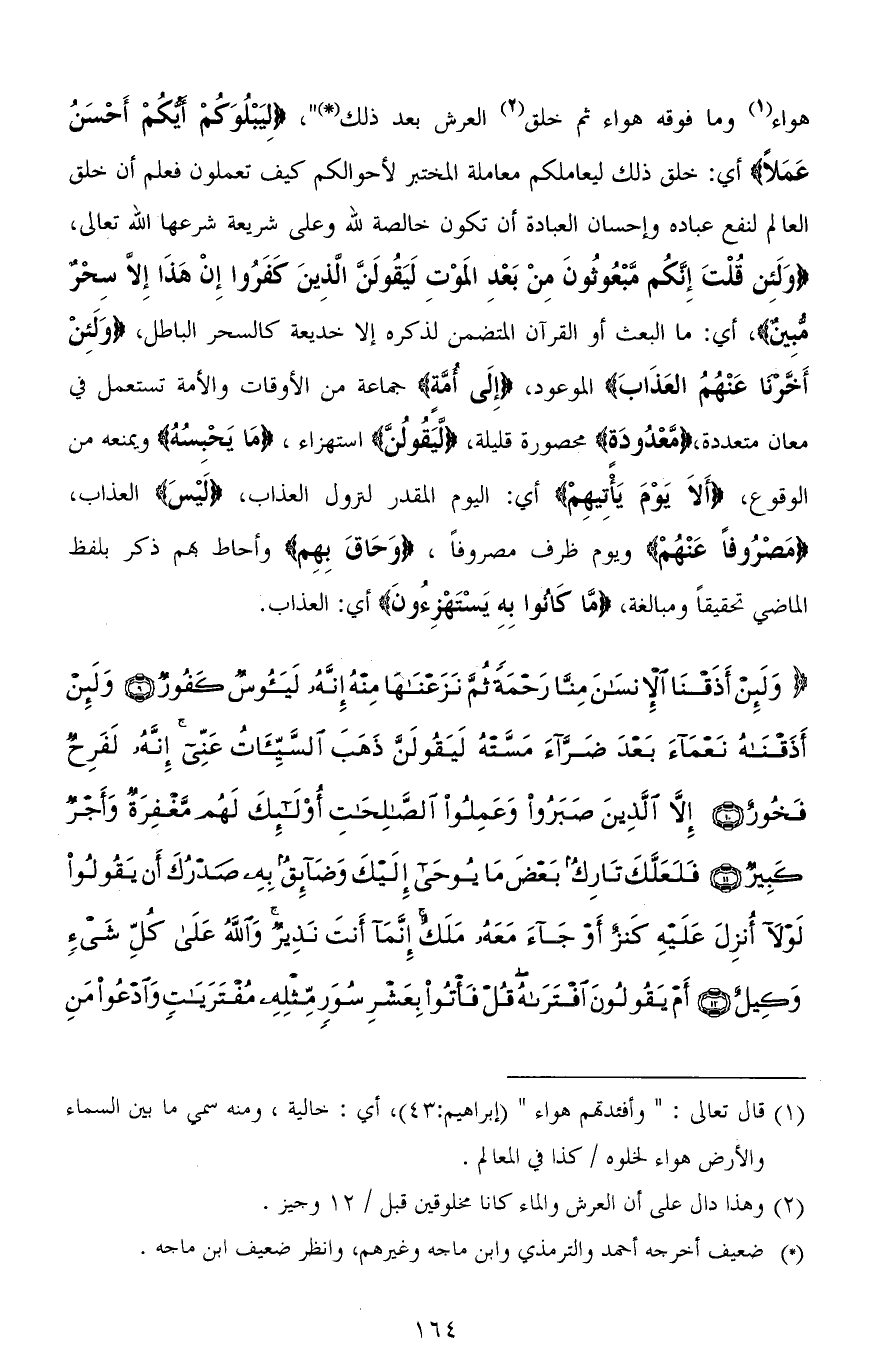 هواء(١) وما فوقه هواء ثم خلق(٢) العرش بعد ذلك(*)"، ﴿لِيَبْلُوَكُمْ أَيُّكُمْ أَحْسَنُ
عَمَلاً﴾ أي: خلق ذلك ليعاملكم معاملة المختبر لأحوالكم كيف تعملون فعلم أن خلق
العالم لنفع عباده وإحسان العبادة أن تكون خالصة لله وعلى شريعة شرعها الله تعالى،
﴿وَلَئِن قُلْتَ إِنَّكُم مَّبْعُوثُونَ مِنْ بَعْدِ المَوْتِ لَيَقُولَنَّ الَّذِينَ كَفَرُوا إِنْ هَذَا إِلاَّ سِحْرٌ
مُّبِينٌ﴾، أي: ما البعث أو القرآن المتضمن لذكره إلا خديعة كالسحر الباطل، ﴿وَلَئِنْ
أَخَّرْنَا عَنْهُمُ العَذَابَ﴾ الموعود، ﴿إِلَى أُمَّةٍ﴾ جماعة من الأوقات والأمة تستعمل في
معان متعددة،﴿مَّعْدُودَةٍ﴾ محصورة قليلة، ﴿لَّيَقُولُنَّ﴾ استهزاء ، ﴿مَا يَحْبِسُهُ﴾ ويمنعه من
الوقوع، ﴿أَلاَ يَوْمَ يَأْتِيهِمْ﴾ أي: اليوم المقدر لنزول العذاب، ﴿لَيْسَ﴾ العذاب،
﴿مَصْرُوفاً عَنْهُمْ﴾ ويوم ظرف مصروفاً ، ﴿وَحَاقَ بِهِم﴾ وأحاط بهم ذكر بلفظ
الماضي تحقيقاً ومبالغة، ﴿مَّا كَانُوا بِهِ يَسْتَهْزِءُونَ﴾ أي: العذاب.
﴿ وَلَئِنْ أَذَقْنَا ٱلْإِنسَٰنَ مِنَّا رَحْمَةً ثُمَّ نَزَعْنَٰهَا مِنْهُ إِنَّهُۥ لَيَـُٔوسٌ كَفُورٌ ٩ وَلَئِنْ
أَذَقْنَٰهُ نَعْمَآءَ بَعْدَ ضَرَّآءَ مَسَّتْهُ لَيَقُولَنَّ ذَهَبَ ٱلسَّيِّـَٔاتُ عَنِّىٓ ۚ إِنَّهُۥ لَفَرِحٌ
فَخُورٌ ١٠ إِلَّا ٱلَّذِينَ صَبَرُوا۟ وَعَمِلُوا۟ ٱلصَّٰلِحَٰتِ أُو۟لَٰٓئِكَ لَهُم مَّغْفِرَةٌ وَأَجْرٌ
كَبِيرٌ ١١ فَلَعَلَّكَ تَارِكٌۢ بَعْضَ مَا يُوحَىٰٓ إِلَيْكَ وَضَآئِقٌۢ بِهِۦ صَدْرُكَ أَن يَقُولُوا۟
لَوْلَآ أُنزِلَ عَلَيْهِ كَنزٌ أَوْ جَآءَ مَعَهُۥ مَلَكٌ ۚ إِنَّمَآ أَنتَ نَذِيرٌ ۚ وَٱللَّهُ عَلَىٰ كُلِّ شَىْءٍ
وَكِيلٌ ١٢ أَمْ يَقُولُونَ ٱفْتَرَىٰهُ ۖ قُلْ فَأْتُوا۟ بِعَشْرِ سُوَرٍ مِّثْلِهِۦ مُفْتَرَيَٰتٍ وَٱدْعُوا۟ مَنِ
(١) قال تعالى : " وأفئدتهم هواء " (إبراهيم:٤٣)، أي : خالية ، ومنه سمي ما بين السماء
والأرض هواء لخلوه / كذا في المعالم .
(٢) وهذا دال على أن العرش والماء كانا مخلوقين قبل / ١٢ وجيز .
(*) ضعيف أخرجه أحمد والترمذي وابن ماجه وغيرهم، وانظر ضعيف ابن ماجه .
١٦٤